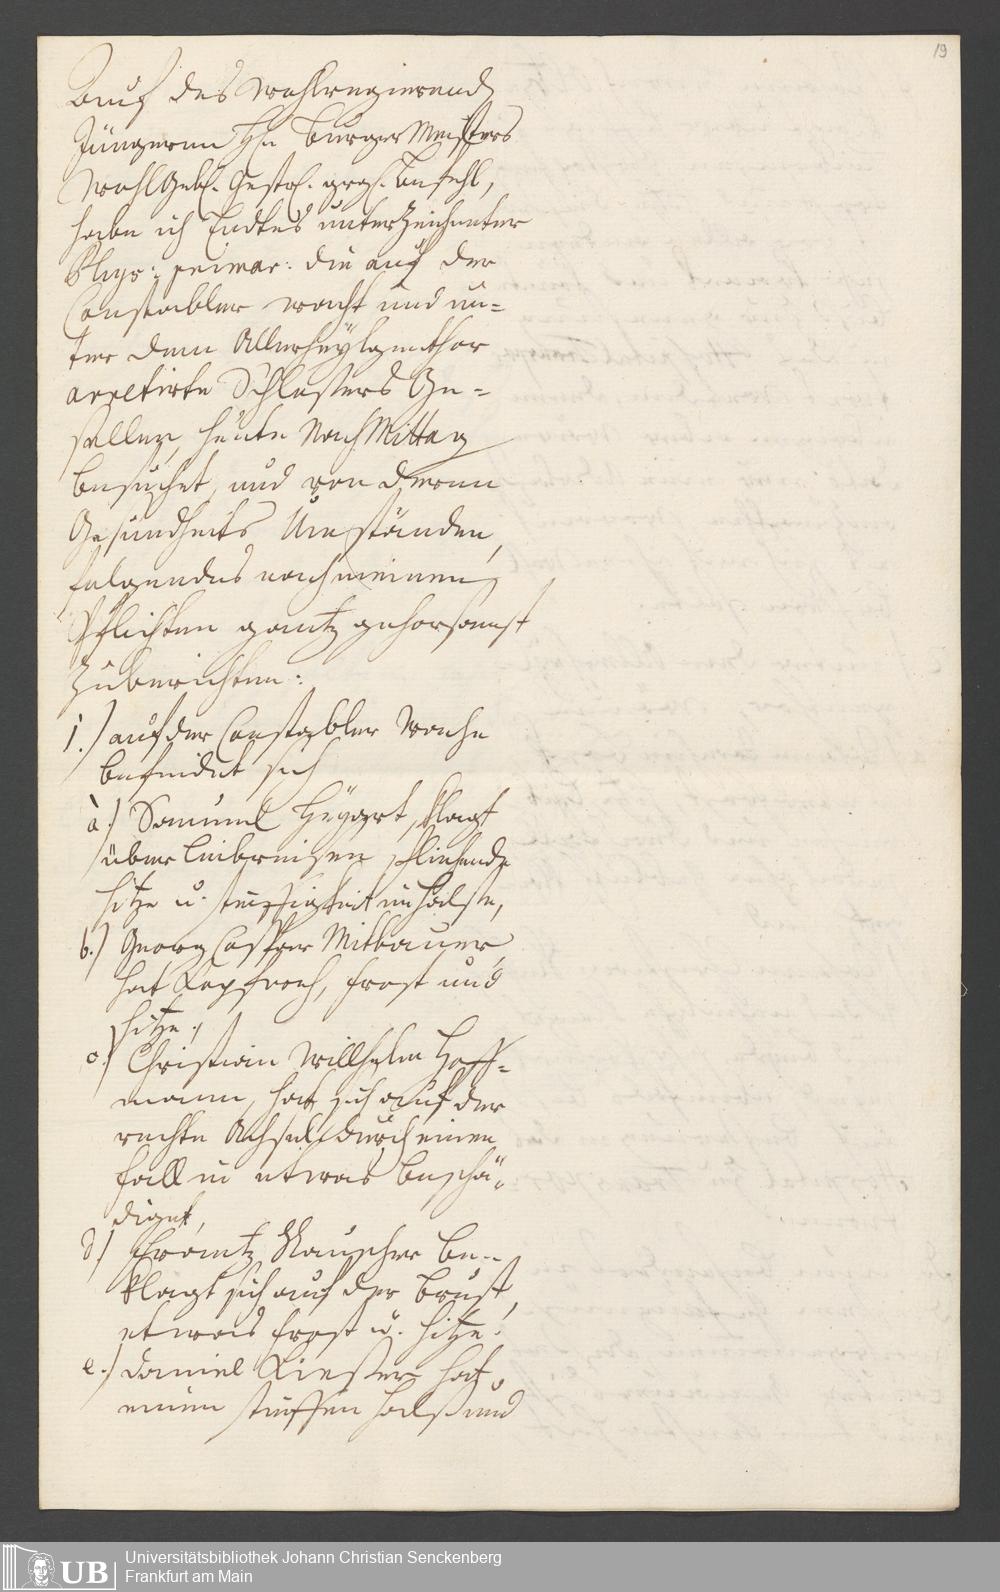 19
Auf des wohlregierend
Jüngeren Hn. Burger Meisters
WohlGebh. Gestr. grgst. Befehl,
habe ich Endtes unterzeichneter
Phys: primar: die auf der
Constabler wacht und un-
ter dem Allerheyligenthor
arretirte Schlossers Ge-
sellen, heute NachMittag
besuchet, und von deren
Gesundheits Umständen,
folgendes nach meinen
Pflichten gantz gehorsamst
zu berichten:
1.) auf der Constabler Wache
befindet sich
a.) Samuel Heygert, klagt
über Leibreisen fliehende
Hitze u. steiffigkeit im Halse,
b.) Georg Caspar Mitbauer,
hat Kopfweh, frost und
Hitze,
c.) Christian Willhelm Hoff-
mann, hat sich auf der
rechte Achsel durch einen
fall in etwas beschä-
diget,
d.) Frantz Rauscher be-
klagt sich auf der Brust,
etwas frost u. Hitze.
e.) Daniel Riester hat
einen steiffen Halß und
UB
Universitätsbibliothek Johann Christian Senckenberg
Frankfurt am Main